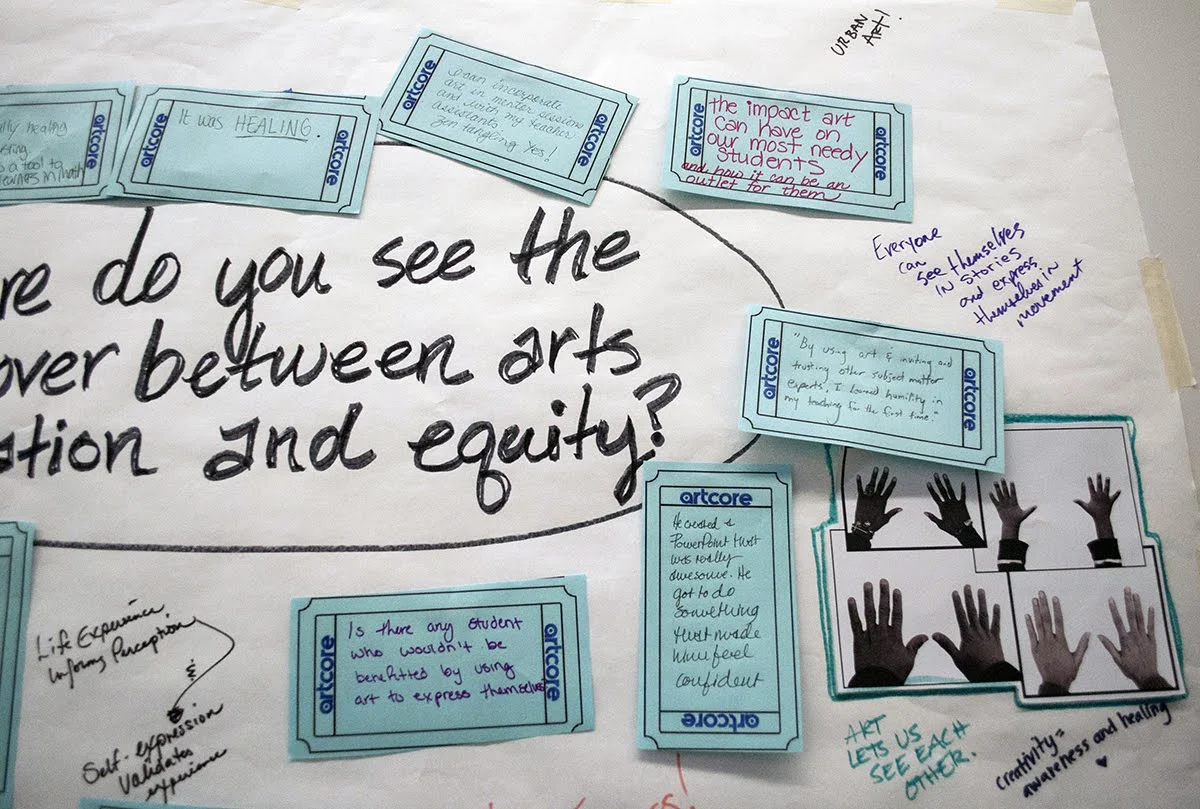 URBAN
ART!
artcore
ally healing
as a tool to
artcore
It was HEALING.
artcore
artcore
I can incorporate
art in mentor sessions
and with my teacher
assistants
Zen tangling Yes!
artcore
artcore
the impact art
can have on
our most needy
students
and how it can be an
outlet for them
artcore
re do you see the
over between arts
ation and equity?
Everyone
can
see themselves
in stories
and express
themselves in
movement
artcore
"By using art & inviting and
trusting other subject matter
experts, I learned humility in
my teaching for the first time."
artcore
artcore
He created a
PowerPoint that
was really
awesome. He
got to do
something
that made
him feel
confident
artcore
artcore
Is there any student
who wouldn't be
benefitted by using
art to express themselves
artcore
Life Experience
Informs Perception
&
Self-expression
Validates
experience
ART
LETS US
SEE EACH
OTHER.
creativity =
awareness and healing